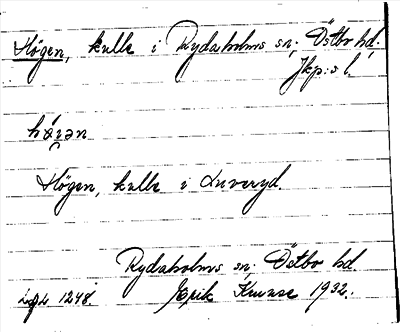 Högen, kulle i Rydaholms sn; Östbo hd.
Jkp:s l.
Högen, kulle i Luveryd.
Rydaholms sn; Östbo hd.
1248. Erik 1932.